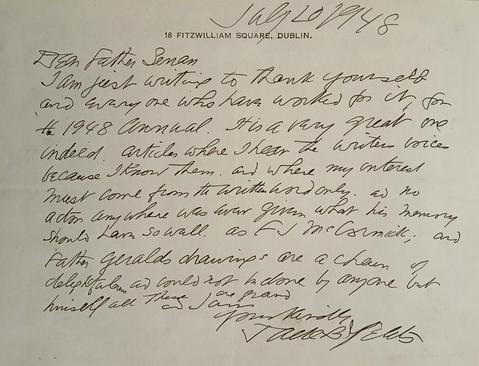 July 20 1948
18 FITZWILLIAM SQUARE, DUBLIN.
Dear Father Senan
I am just writing to thank yourself
and every one who have worked for it, for
the 1948 Annual. It is a very great one
indeed. articles where I hear the writers voice
because I know them. and where my interest
must come from the written word only. ad no
actor anywhere was ever given what his memory
should have so well. as F J McCormick; and
Father Geralds drawings are a chain of
ad could not be done by anyone but
himself all these are grand
and I am
Yours kindly
Jack B Yeats